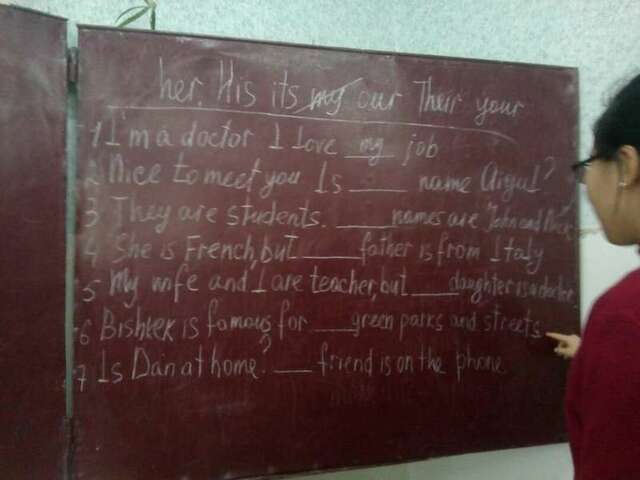 her. His its my our Their your
1 I'm a doctor I love my job
2 Nice to meet you Is ____ name Aigul?
3 They are students. ____ names are John and Nick
4 She is French, but ____ father is from Italy
5 My wife and I are teacher, but ____ daughter is a doctor.
6 Bishkek is famous for ____ green parks and streets
7 Is Dan at home? ____ friend is on the phone